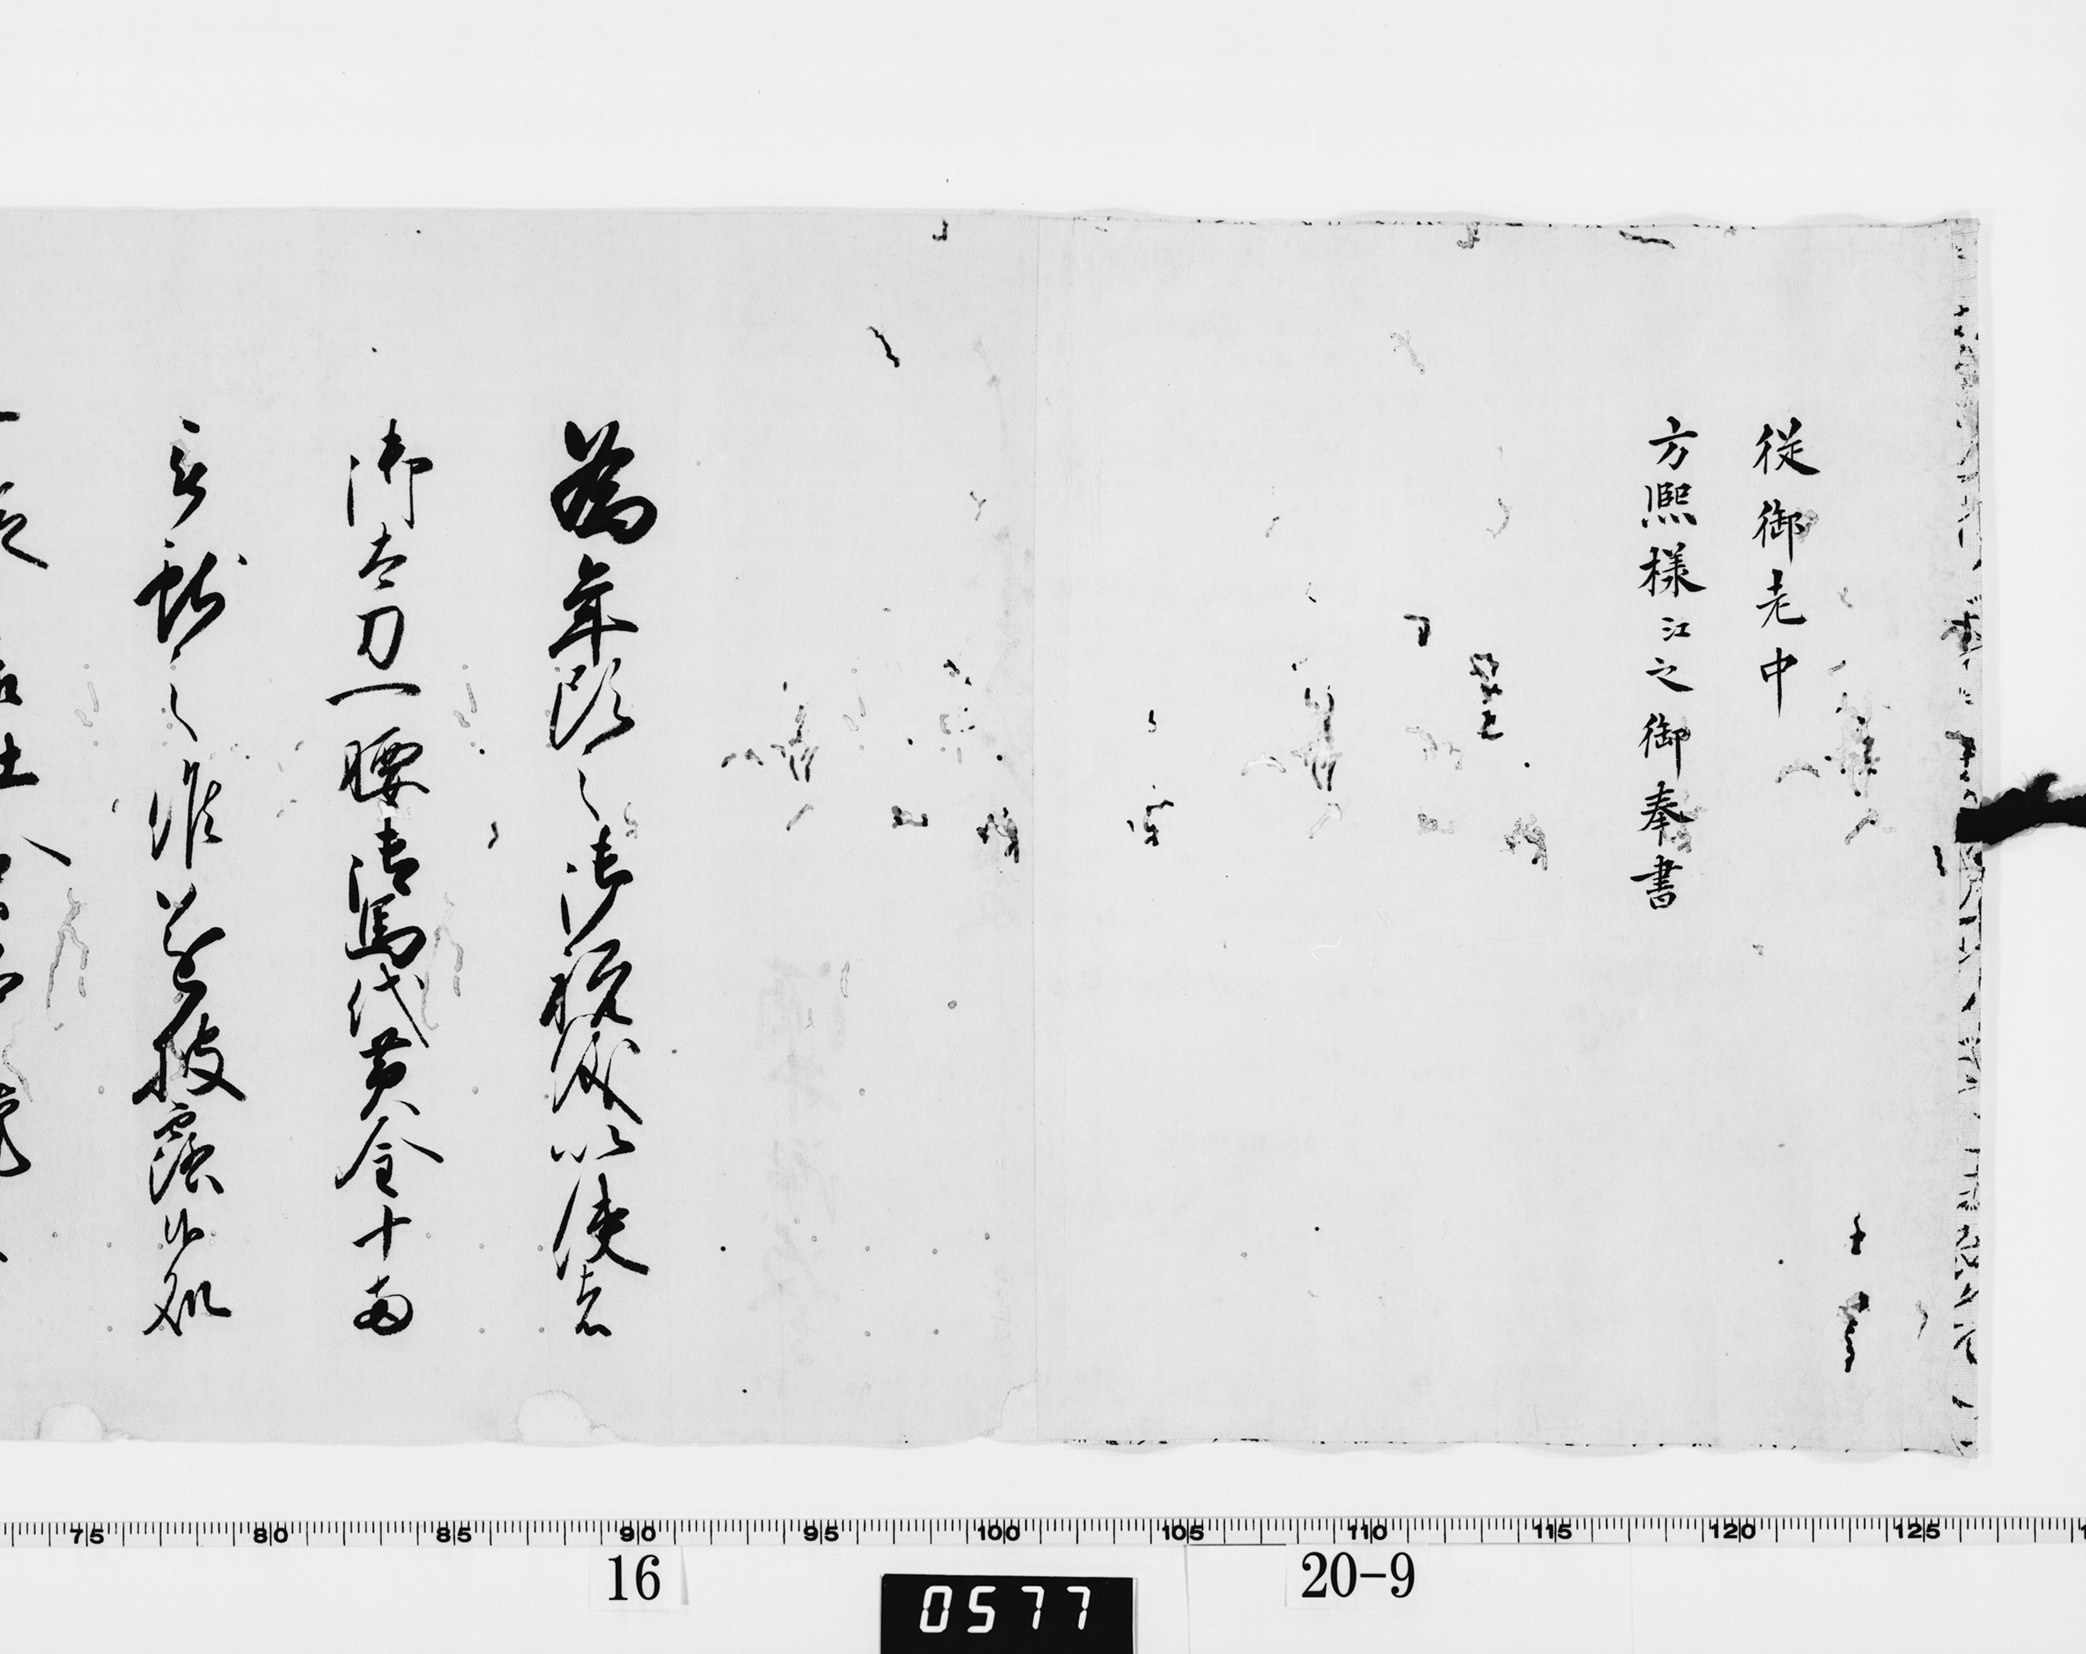 従御老中
方熈様江之御奉書
為年頭之御祝儀以使者
御太刀一腰御馬代黄金十両
被献之候遂披露候処
75 80 85 90 95 100 105 110 115 120 125
16
0577
20-9